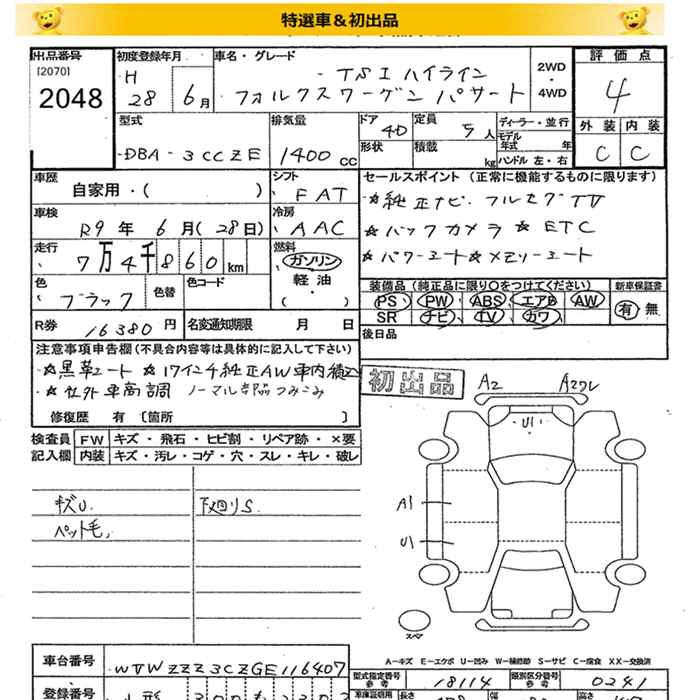 特選車＆初出品
出品番号
[2070]
2048
初度登録年月
H
28 6月
車名・グレード
TSIハイライン
フォルクスワーゲン パサート
2WD
・
4WD
評価点
4
外装 内装
C C
型式
DBA-3CCZE
排気量
1400cc
ドア
4D
形状
定員
5人
積載
kg
ディーラー・並行
モデル
年式 年
ハンドル 左・右
車歴
自家用・( )
シフト
FAT
車検
R9年 6月(28日)
冷房
AAC
走行
7万4千860km
燃料
ガソリン
軽油
( )
色
ブラック
色替
色コード
R券
16380円
名変通知期限 月 日
セールスポイント (正常に機能するものに限ります)
☆純正ナビ. フルセグTV
☆バックカメラ ☆ ETC
☆パワーシート☆メモリーシート
装備品 (純正品に限り○をつけてください)
PS PW ABS エアB AW
SR ナビ TV カワ
新車保証書
有 無
後日品
注意事項申告欄 (不具合内容等は具体的に記入して下さい)
☆黒革シート ☆17インチ純正AW車内積込
☆社外車高調 ノーマル部品つみこみ
修復歴 有 〔箇所 〕
初出品
検査員 FW キズ・飛石・ヒビ割・リペア跡・×要
記入欄 内装 キズ・汚レ・コゲ・穴・スレ・キレ・破レ
キズU.
ペット毛,
下廻りS.
A2 A2ワレ
U1
A1
U1
スペア
A−キズ E−エクボ U−凹み W−補修跡 S−サビ C−腐食 XX−交換済
車台番号
WVWZZZ3CZGE116407
登録番号
型式指定番号
参考
18114
類別区分番号
参考
0241
車庫証明用
長さ